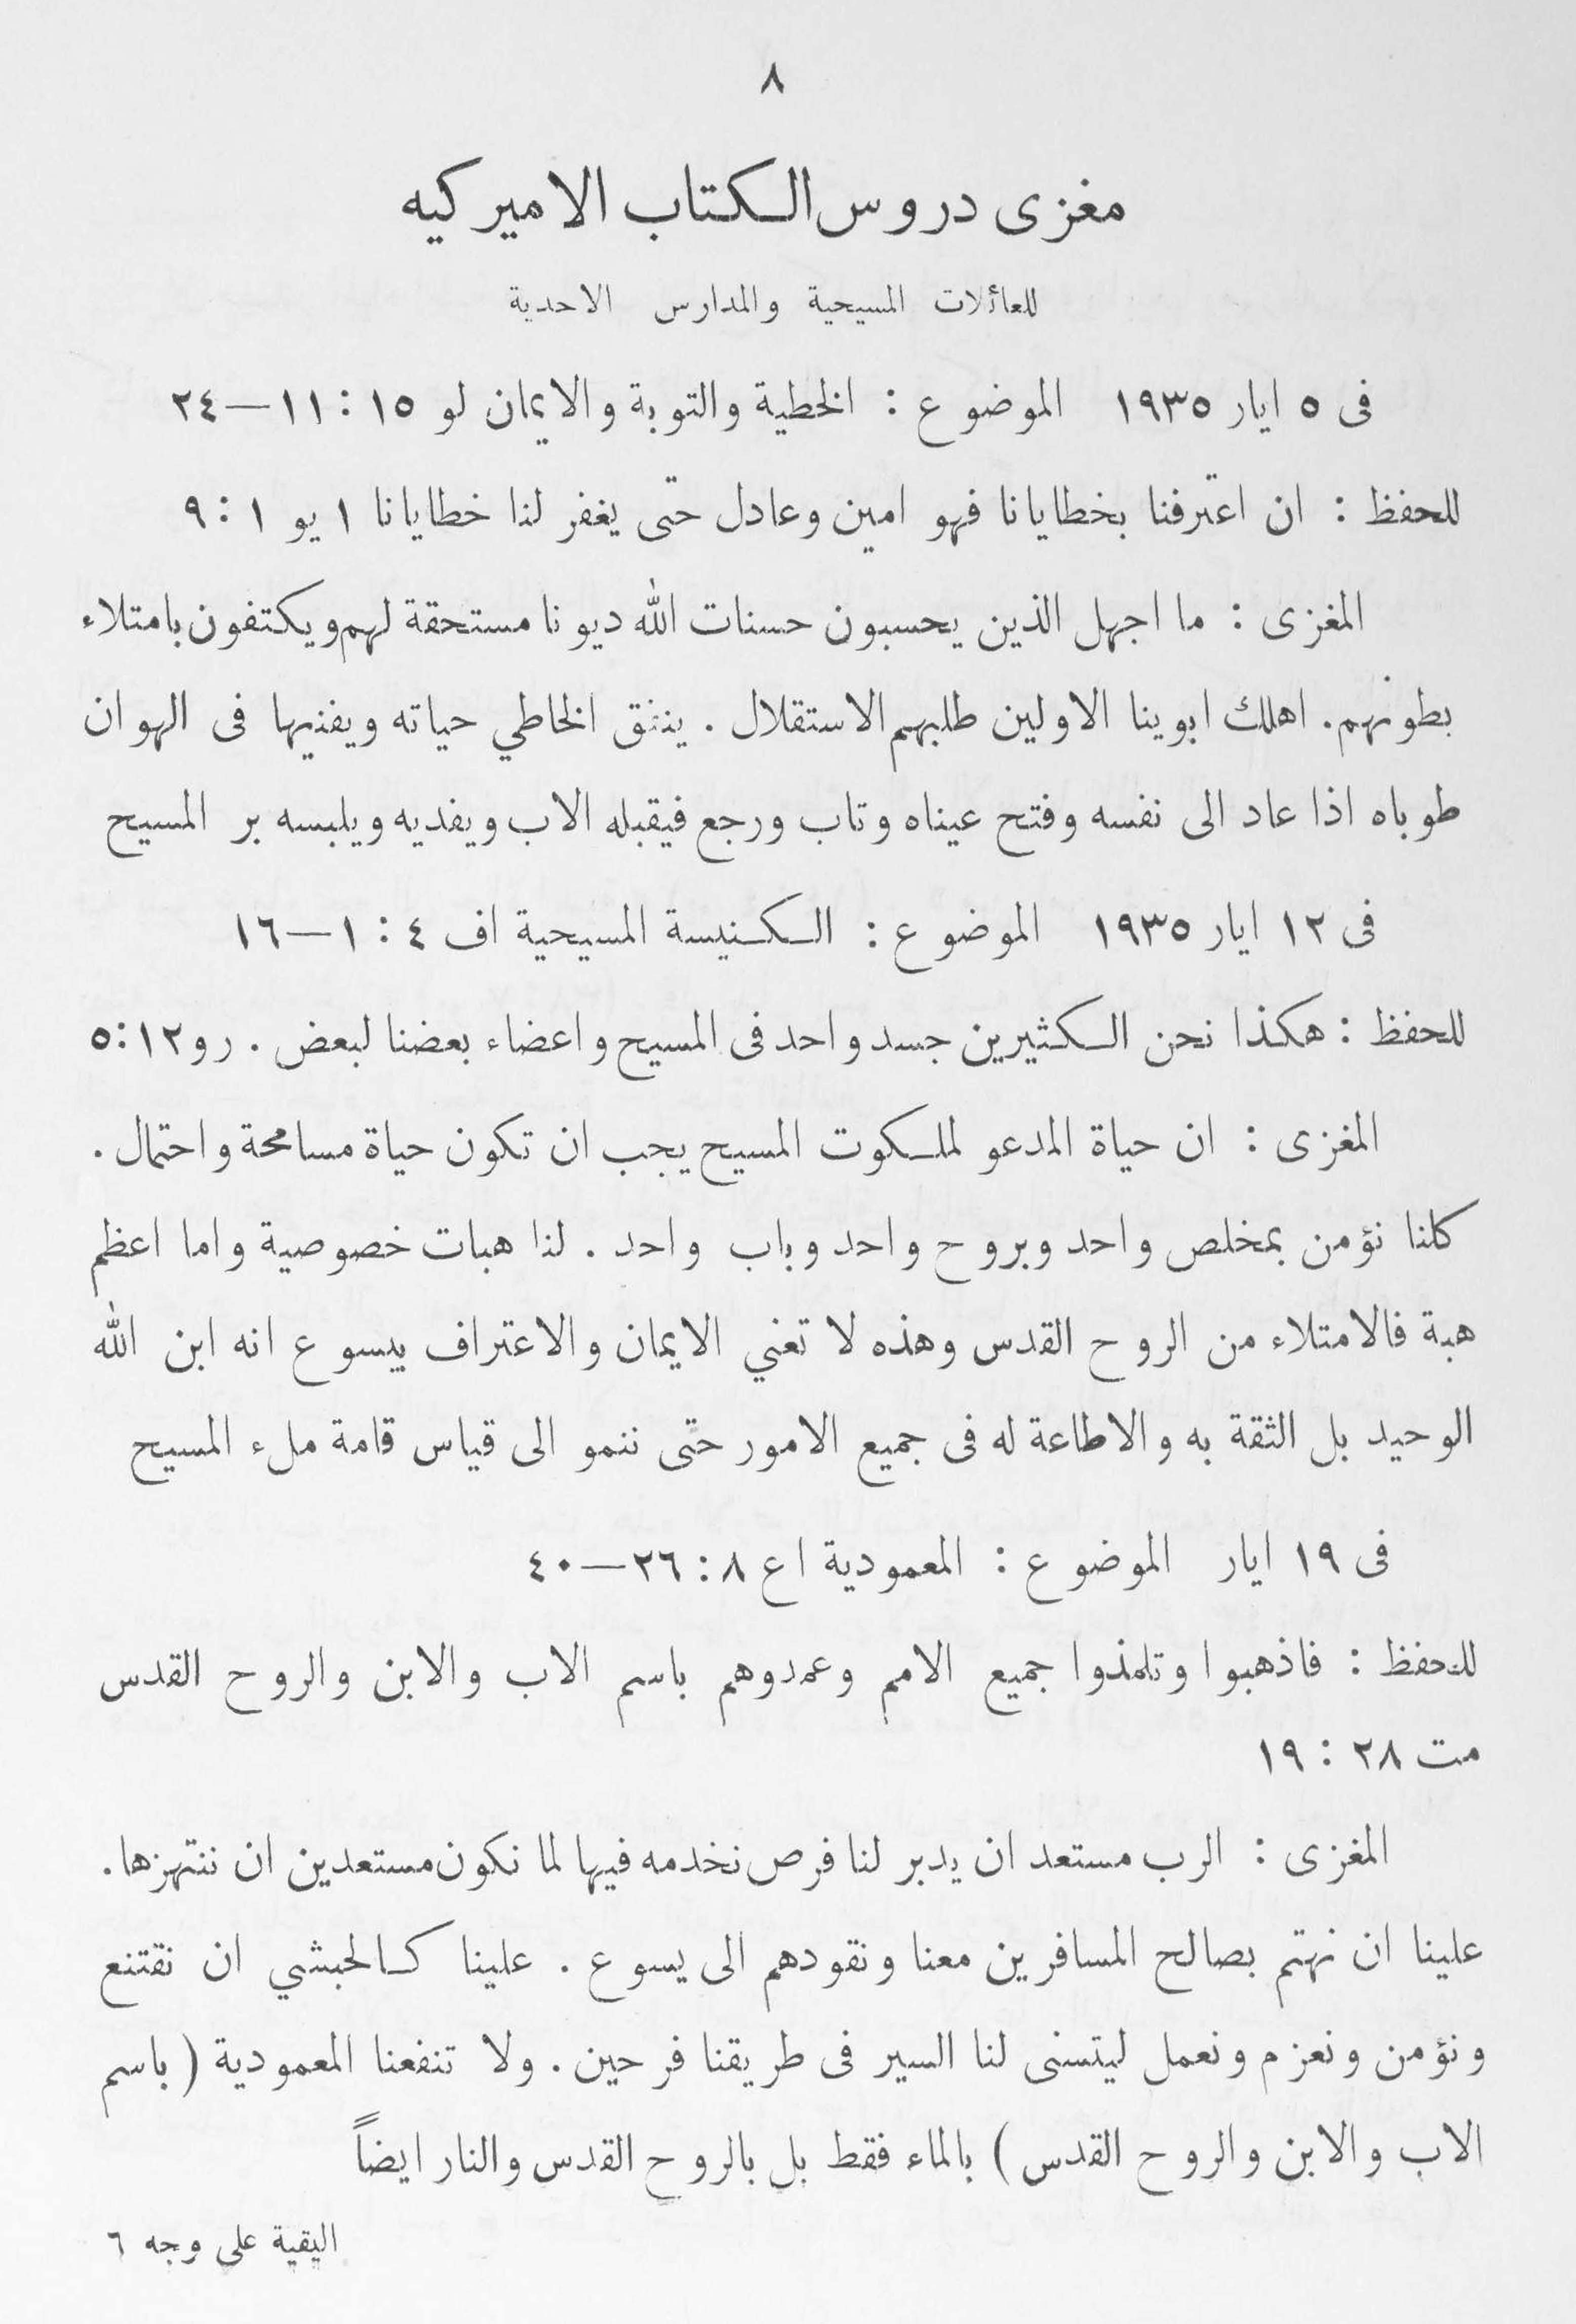 ٨
مغزى دروس الكتاب الاميركيه
للعائلات المسيحية والمدارس الاحدية
فى ٥ ايار ١٩٣٥ الموضوع : الخطية والتوبة والايمان لو ١٥ : ١١—٢٤
للحفظ : ان اعترفنا بخطايانا فهو امين وعادل حتى يغفر لنا خطايانا ١ يو ١ : ٩
المغزى : ما اجهل الذين يحسبون حسنات الله ديونا مستحقة لهم ويكتفون بامتلاء
بطونهم. اهلك ابوينا الاولين طلبهم الاستقلال . ينفق الخاطي حياته ويفنيها فى الهوان
طوباه اذا عاد الى نفسه وفتح عيناه وتاب ورجع فيقبله الاب ويفديه ويلبسه بر المسيح
فى ١٢ ايار ١٩٣٥ الموضوع : الكنيسة المسيحية اف ٤ : ١—١٦
للحفظ : هكذا نحن الكثيرين جسد واحد فى المسيح واعضاء بعضنا لبعض . رو ١٢:٥
المغزى : ان حياة المدعو لملكوت المسيح يجب ان تكون حياة مسامحة واحتمال .
كلنا نؤمن بمخلص واحد وبروح واحد وباب واحد . لنا هبات خصوصية واما اعظم
هبة فالامتلاء من الروح القدس وهذه لا تعني الايمان والاعتراف بيسوع انه ابن الله
الوحيد بل الثقة به والاطاعة له فى جميع الامور حتى ننمو الى قياس قامة ملء المسيح
فى ١٩ ايار الموضوع : المعمودية اع ٨ : ٢٦—٤٠
للحفظ : فاذهبوا وتلمذوا جميع الامم وعمدوهم باسم الاب والابن والروح القدس
مت ٢٨ : ١٩
المغزى : الرب مستعد ان يدبر لنا فرص نخدمه فيها لما نكون مستعدين ان ننتهزها.
علينا ان نهتم بصالح المسافرين معنا ونقودهم الى يسوع . علينا كالحبشي ان نقتنع
ونؤمن ونعزم ونعمل ليتسنى لنا السير فى طريقنا فرحين . ولا تنفعنا المعمودية ( باسم
الاب والابن والروح القدس ) بالماء فقط بل بالروح القدس والنار ايضاً
اليقية على وجه ٦